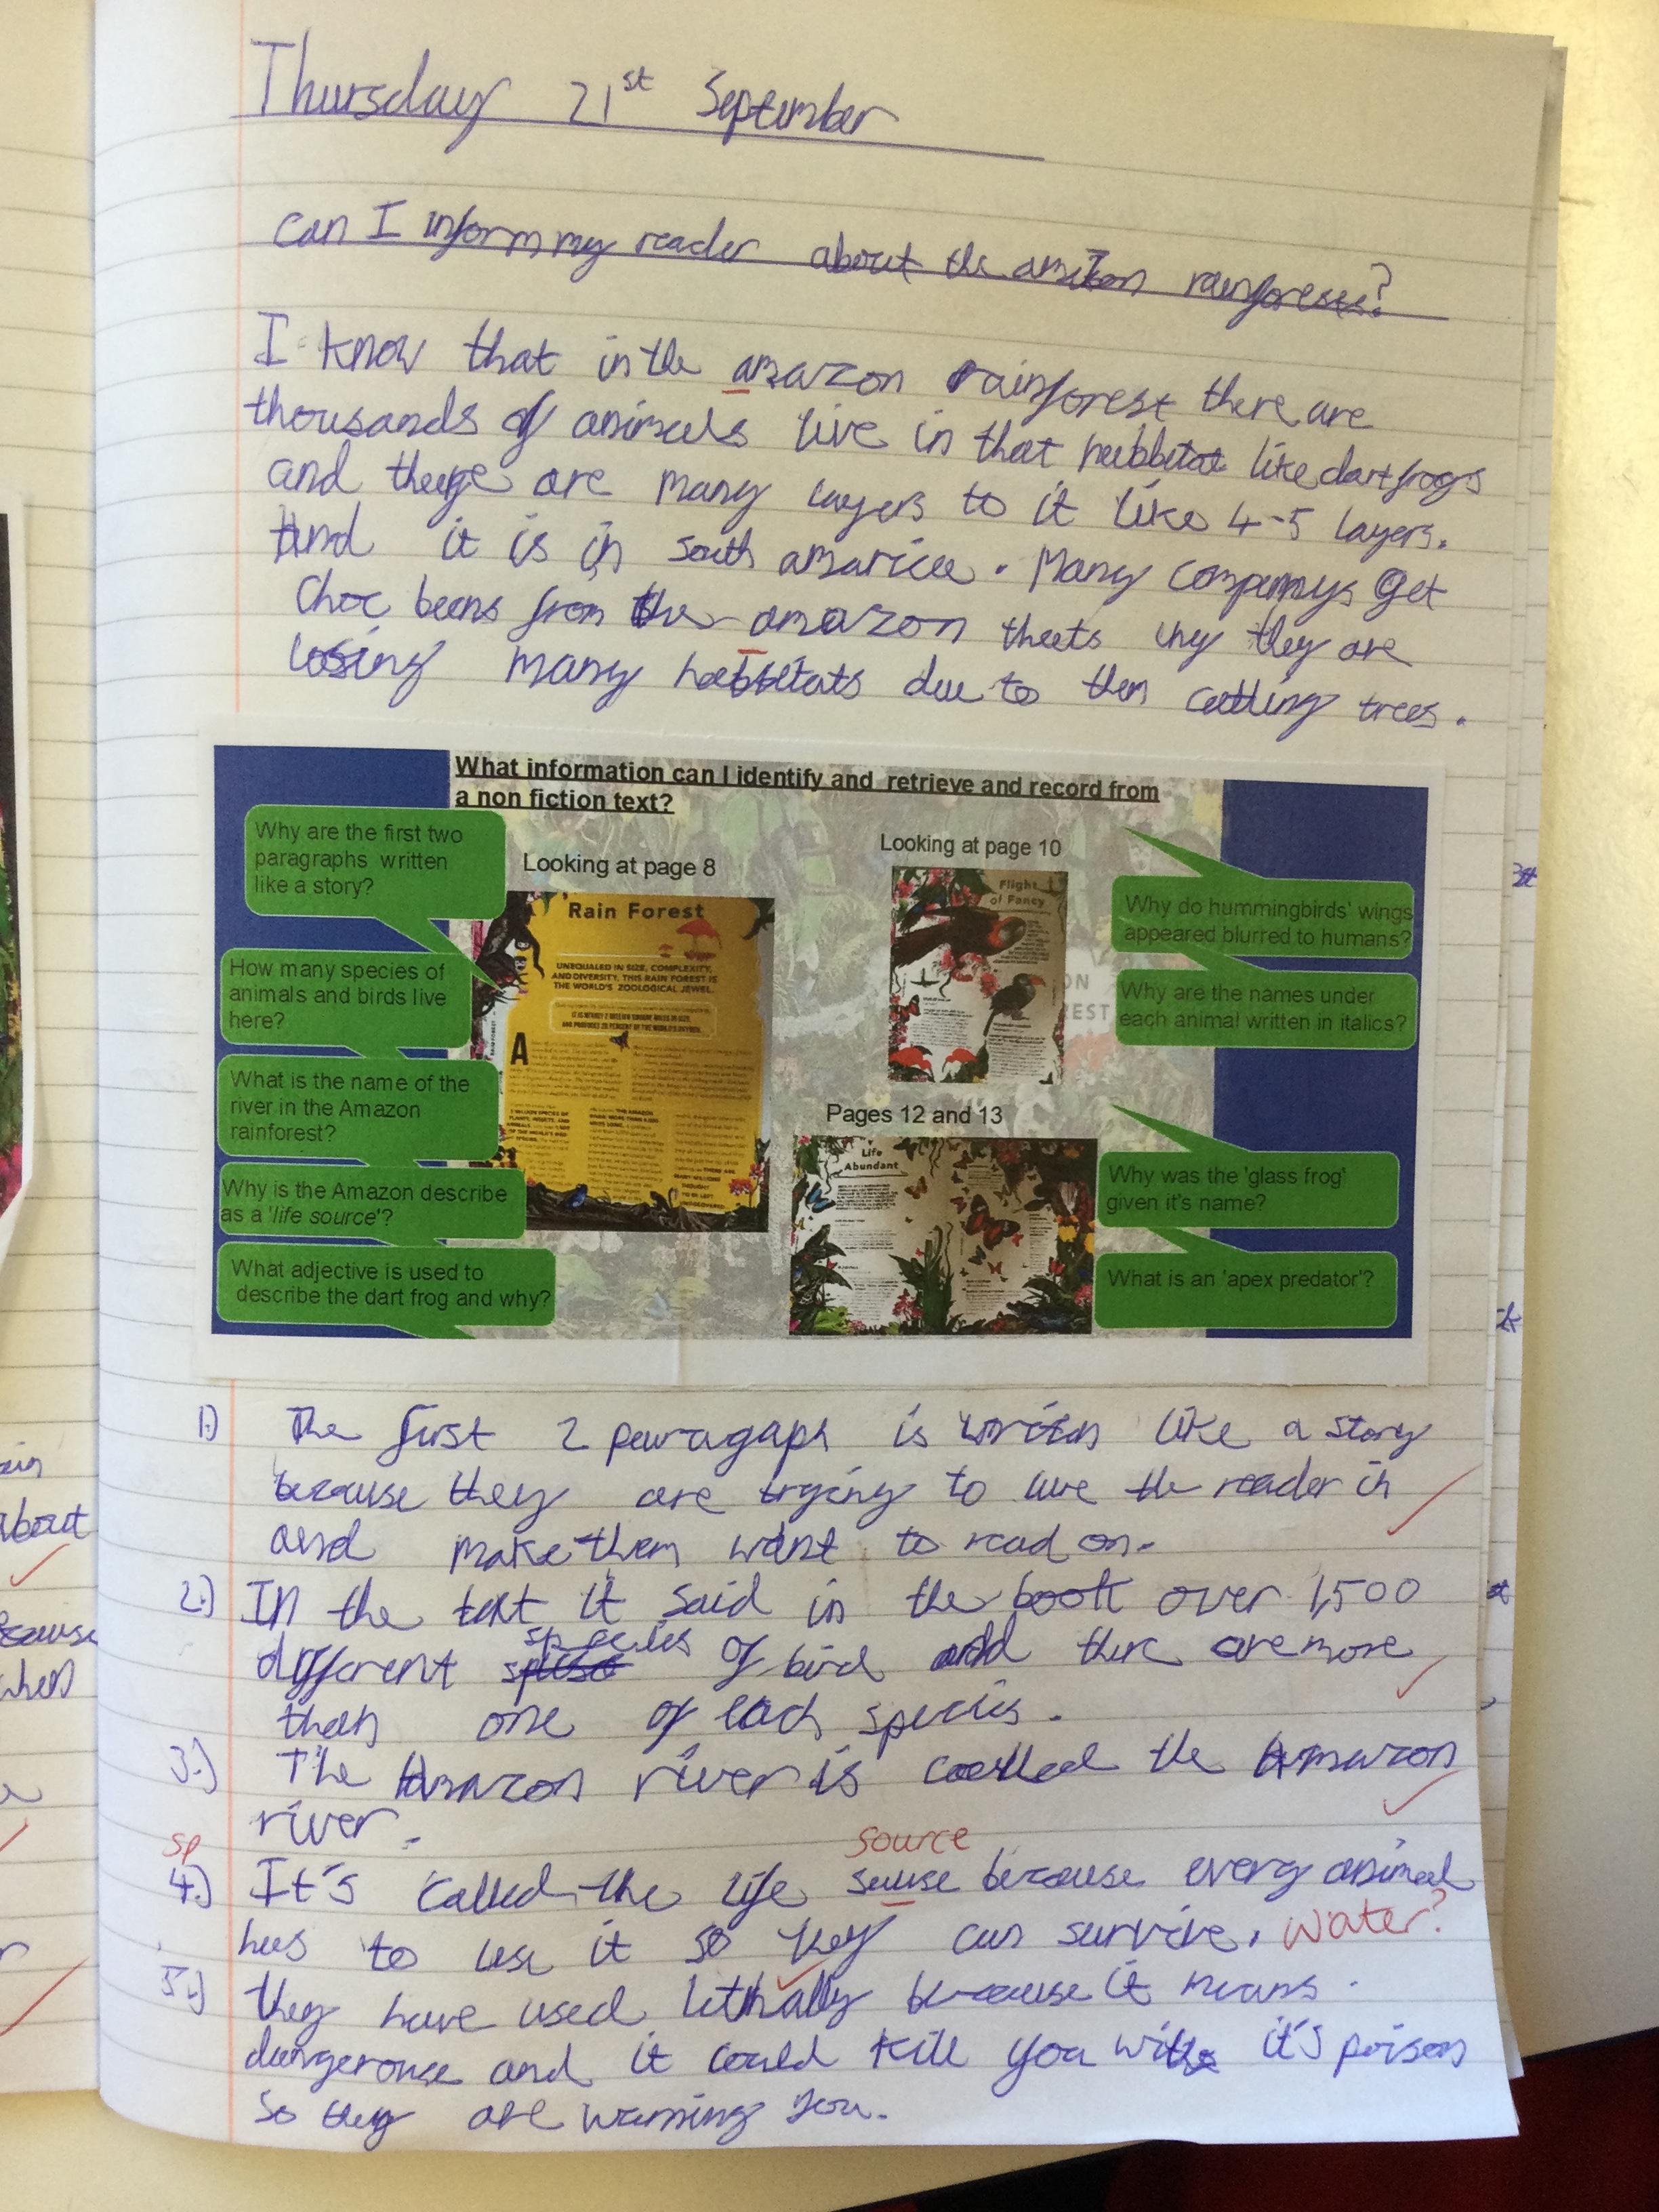 Thursday 21st September
can I inform my reader about the amazon rainforests?
I know that in the amazon rainforest there are
thousands of animals live in that habbitat like dart frogs
and there are many layers to it like 4-5 layers.
And it is in south amarica. Many compannys get
choc beens from the amazon thats why they are
losing many habbitats due to them cutting trees.
What information can I identify and retrieve and record from
a non fiction text?
Why are the first two
paragraphs written
like a story?
Looking at page 8
Looking at page 10
How many species of
animals and birds live
here?
What is the name of the
river in the Amazon
rainforest?
Why is the Amazon describe
as a 'life source'?
What adjective is used to
describe the dart frog and why?
Rain Forest
UNEQUALED IN SIZE, COMPLEXITY,
AND DIVERSITY, THIS RAIN FOREST IS
THE WORLD'S ZOOLOGICAL JEWEL.
A
Flight
of Fancy
Why do hummingbirds' wings
appeared blurred to humans?
Why are the names under
each animal written in italics?
Pages 12 and 13
Life
Abundant
Why was the 'glass frog'
given it's name?
What is an 'apex predator'?
1) The first 2 paragaph is writen like a story
because they are trying to lure the reader in
and make them want to read on.
2.) In the text it said in the book over 1,500
different species of bird and there are more
than one of each species.
3.) The Amazon river is called the Amazon
river.
sp source
4.) It's called the life sause because every animal
has to use it so they can survive. water?
5.) they have used lethally because it means
dangerouse and it could kill you with it's poison
so they are warning you.
about